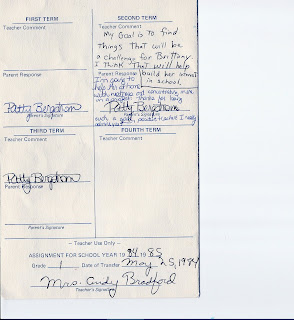 FIRST TERM
Teacher Comment
Parent Response
Patty Bergstrom
Parent's Signature
SECOND TERM
Teacher Comment
My Goal is to find
things that will be
a challenge for Brittany.
I think that will help
Parent Response build her interest
in school.
I'm going to
help her at home
with
thanks for being
such a good, positive teacher I really
Patty Bergstrom
Parent's Signature
THIRD TERM
Teacher Comment
Patty Bergstrom
Parent Response
Parent's Signature
FOURTH TERM
Teacher Comment
— Teacher Use Only —
ASSIGNMENT FOR SCHOOL YEAR 1984 1985
Grade 1 Date of Transfer May 25, 1984
Mrs. Cindy Bradford
Teacher's Signature